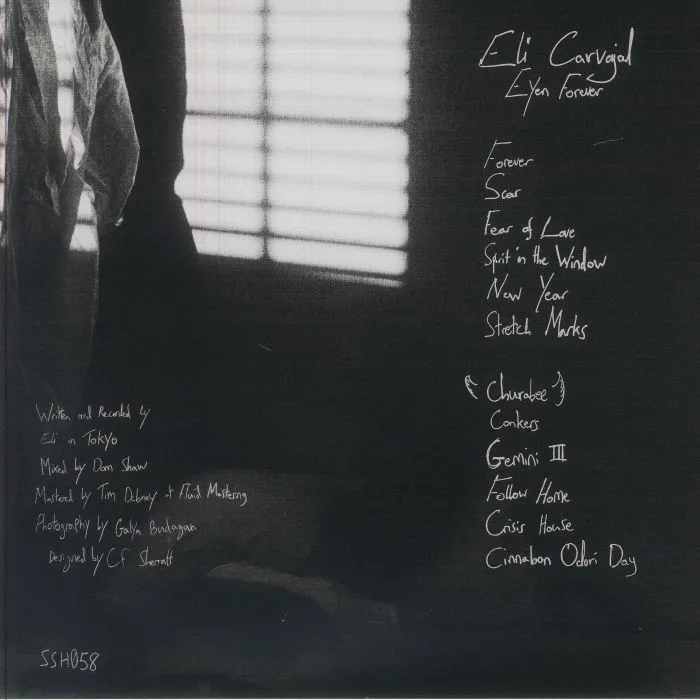 Eli Carvajal
Eyen Forever
Forever
Scar
Fear of Love
Spirit in the Window
New Year
Stretch Marks
(Churabee)
Conkers
Gemini III
Follow Home
Crisis House
Cinnabon Odori Day
Written and Recorded by
Eli in Tokyo
Mixed by Dom Shaw
Mastered by Tim Debney at Fluid Mastering
Photography by Galya
Designed by CF Sherratt
SSH058